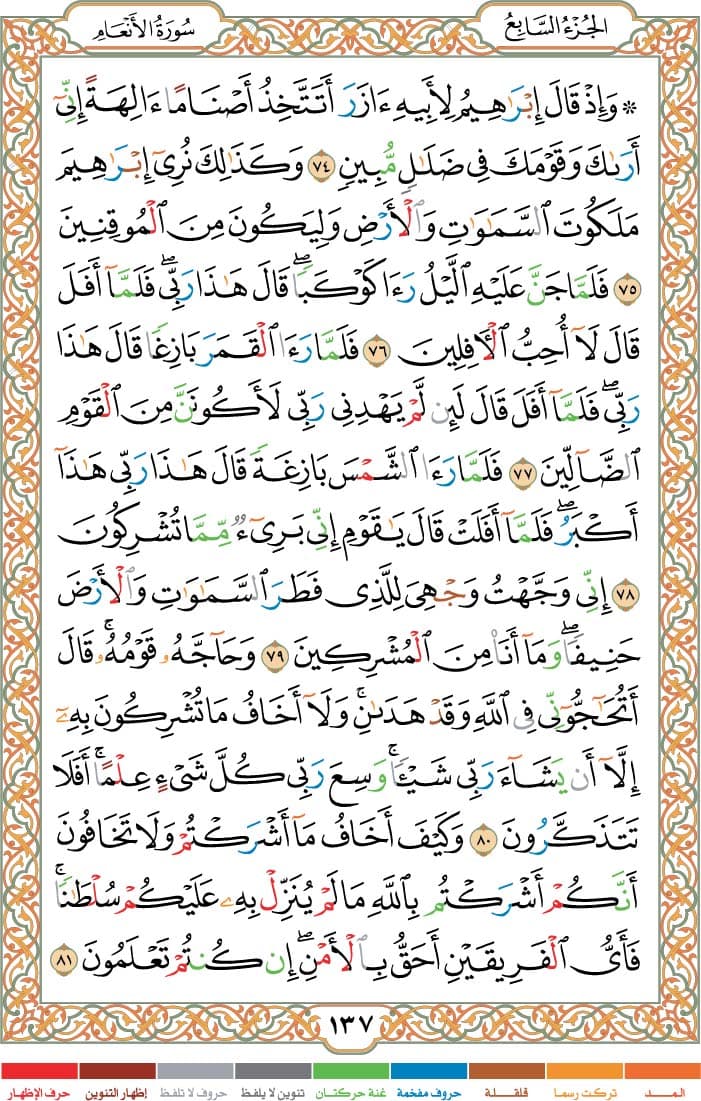 الجُزْءُ السَّابِعُ
سُورَةُ الأَنْعَامِ
۞ وَإِذْ قَالَ إِبْرَٰهِيمُ لِأَبِيهِ ءَازَرَ أَتَتَّخِذُ أَصْنَامًا ءَالِهَةً إِنِّىٓ
أَرَىٰكَ وَقَوْمَكَ فِى ضَلَٰلٍ مُّبِينٍ ٧٤ وَكَذَٰلِكَ نُرِىٓ إِبْرَٰهِيمَ
مَلَكُوتَ السَّمَٰوَٰتِ وَالْأَرْضِ وَلِيَكُونَ مِنَ الْمُوقِنِينَ
٧٥ فَلَمَّا جَنَّ عَلَيْهِ الَّيْلُ رَءَا كَوْكَبًا ۖ قَالَ هَٰذَا رَبِّى ۖ فَلَمَّآ أَفَلَ
قَالَ لَآ أُحِبُّ الْأٓفِلِينَ ٧٦ فَلَمَّا رَءَا الْقَمَرَ بَازِغًا قَالَ هَٰذَا
رَبِّى ۖ فَلَمَّآ أَفَلَ قَالَ لَئِن لَّمْ يَهْدِنِى رَبِّى لَأَكُونَنَّ مِنَ الْقَوْمِ
الضَّآلِّينَ ٧٧ فَلَمَّا رَءَا الشَّمْسَ بَازِغَةً قَالَ هَٰذَا رَبِّى هَٰذَآ
أَكْبَرُ ۖ فَلَمَّآ أَفَلَتْ قَالَ يَٰقَوْمِ إِنِّى بَرِىٓءٌ مِّمَّا تُشْرِكُونَ
٧٨ إِنِّى وَجَّهْتُ وَجْهِىَ لِلَّذِى فَطَرَ السَّمَٰوَٰتِ وَالْأَرْضَ
حَنِيفًا ۖ وَمَآ أَنَا۠ مِنَ الْمُشْرِكِينَ ٧٩ وَحَآجَّهُۥ قَوْمُهُۥ ۚ قَالَ
أَتُحَٰٓجُّوٓنِّى فِى اللَّهِ وَقَدْ هَدَىٰنِ ۚ وَلَآ أَخَافُ مَا تُشْرِكُونَ بِهِۦٓ
إِلَّآ أَن يَشَآءَ رَبِّى شَيْـًٔا ۗ وَسِعَ رَبِّى كُلَّ شَىْءٍ عِلْمًا ۗ أَفَلَا
تَتَذَكَّرُونَ ٨٠ وَكَيْفَ أَخَافُ مَآ أَشْرَكْتُمْ وَلَا تَخَافُونَ
أَنَّكُمْ أَشْرَكْتُم بِاللَّهِ مَا لَمْ يُنَزِّلْ بِهِۦ عَلَيْكُمْ سُلْطَٰنًا ۚ
فَأَىُّ الْفَرِيقَيْنِ أَحَقُّ بِالْأَمْنِ ۖ إِن كُنتُمْ تَعْلَمُونَ ٨١
١٣٧
المـــد تركت رسما قلقـــلة حروف مفخمة غنة حركتـان تنوين لا يلفظ حروف لا تلفظ إظهار التنوين حرف الإظهار